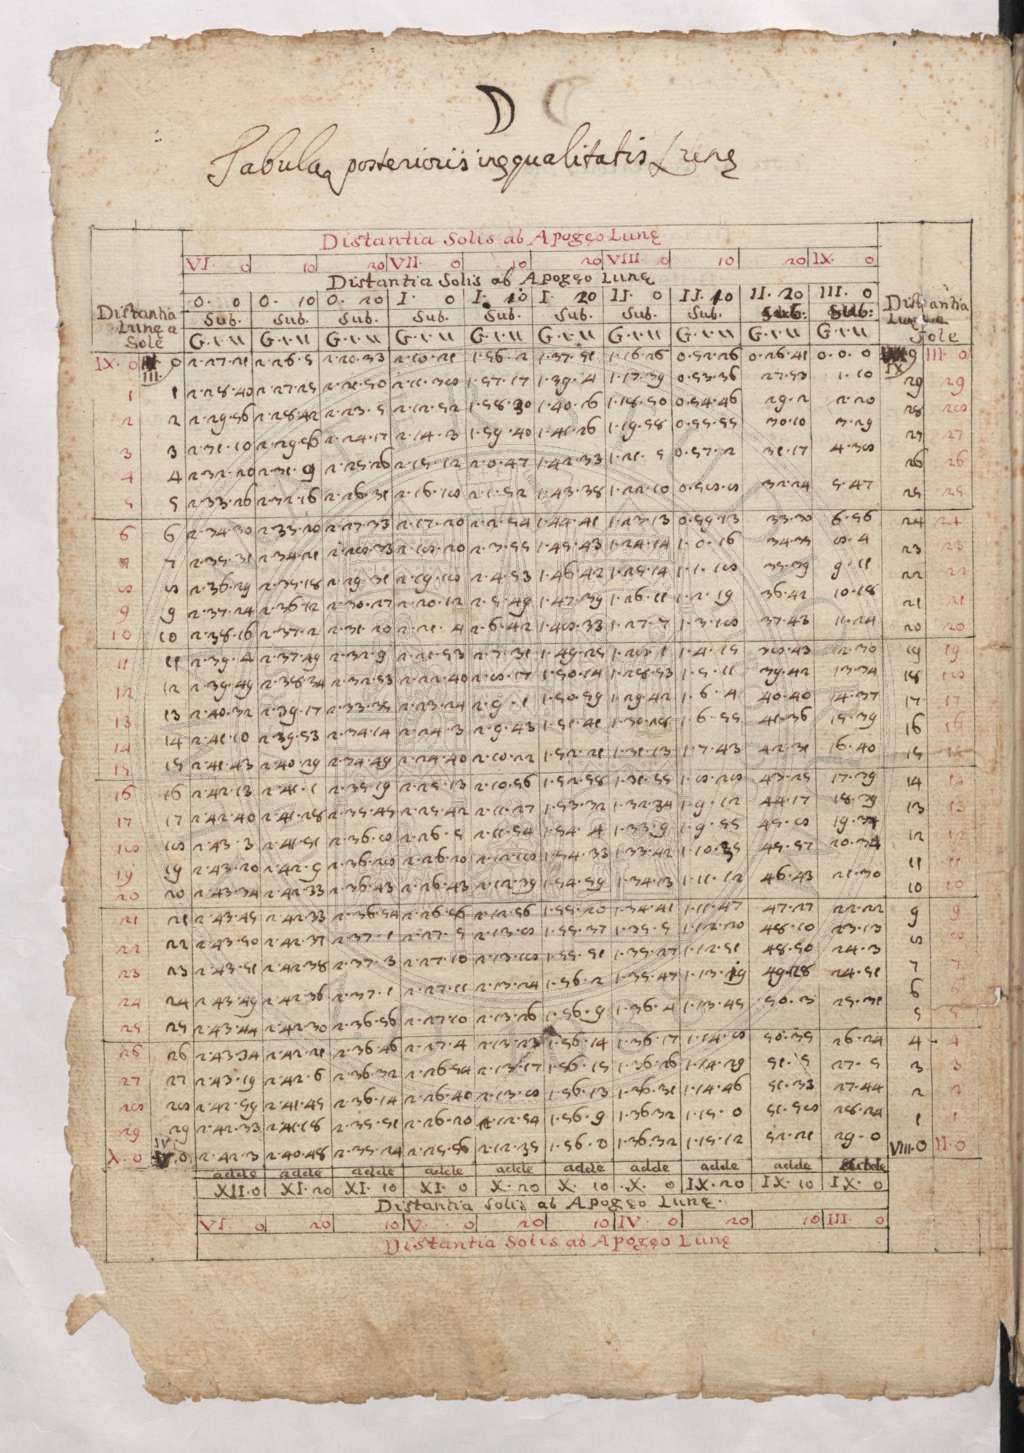 Tabula posterioris inęqualitatis Lunę
Distantia Solis ab Apogęo Lunę
VI. 0 10 20 VII. 0 10 20 VIII. 0 10 20 IX. 0
Distantia Solis ab Apogęo Lunę
Distantia Lunę a Sole
0. 0 0. 10 0. 20 I. 0 I. 10 I. 20 II. 0 II. 10 II. 20 III. 0
Distantia Sole
Sub. Sub. Sub. Sub. Sub. Sub. Sub. Sub. Sub. Sub.
G.ı.ıı G.ı.ıı G.ı.ıı G.ı.ıı G.ı.ıı G.ı.ıı G.ı.ıı G.ı.ıı G.ı.ıı G.ı.ıı
IX. 0 III. 0 2.27.21 2.26.5 2.20.53 2.10.21 1.56.2 1.37.51 1.16.26 0.52.26 0.26.41 0.0.0 IX III. 0
1 1 2.28.40 2.27.25 1.57.17 1.39.4 1.17.39 0.53.36 27.53 1.10 29 29
2 2 2.29.56 2.28.42 2.23.5 2.12.52 1.58.30 1.40.16 1.18.50 0.54.46 29.2 2.20 28 28
3 3 2.31.10 2.29.56 2.24.17 2.14.3 1.59.40 1.41.26 1.19.58 0.55.55 30.10 3.29 27 27
4 4 2.32.20 2.31.9 2.25.26 2.15.12 2.0.47 1.42.33 1.21.5 0.57.2 31.17 4.38 26 26
5 5 2.33.26 2.32.16 2.26.31 2.16.18 2.1.52 1.43.38 1.22.10 0.58.8 32.24 5.47 25 25
6 6 2.34.30 2.33.20 2.27.33 2.17.20 2.2.54 1.44.41 1.23.13 0.59.13 33.30 6.56 24 24
7 7 2.35.31 2.34.21 2.28.33 2.18.20 2.3.55 1.45.43 1.24.14 1.0.16 34.35 8.4 23 23
8 8 2.36.29 2.35.18 2.29.31 2.19.18 2.4.53 1.46.42 1.25.14 1.1.18 35.39 9.11 22 22
9 9 2.37.24 2.36.12 2.30.27 2.20.12 2.5.49 1.47.39 1.26.11 1.2.19 36.42 10.18 21 21
10 10 2.38.16 2.37.2 2.31.20 2.21.4 2.6.42 1.48.33 1.27.7 1.3.18 37.43 11.24 20 20
11 11 2.39.4 2.37.49 2.32.9 2.21.53 2.7.31 1.49.25 1.28.1 1.4.15 38.43 12.30 19 19
12 12 2.39.49 2.38.34 2.32.53 2.22.40 2.8.17 1.50.14 1.28.53 1.5.11 39.42 13.34 18 18
13 13 2.40.32 2.39.17 2.33.35 2.23.24 2.9.1 1.50.59 1.29.42 1.6.4 40.40 14.37 17 17
14 14 2.41.10 2.39.53 2.34.14 2.24.3 2.9.43 1.51.41 1.30.28 1.6.55 41.36 15.39 16 16
15 15 2.41.43 2.40.29 2.34.49 2.24.40 2.10.22 1.52.21 1.31.13 1.7.43 42.31 16.40 15 15
16 16 2.42.13 2.41.1 2.35.19 2.25.13 2.10.56 1.52.58 1.31.55 1.8.28 43.25 17.39 14 14
17 17 2.42.40 2.41.28 2.35.45 2.25.42 2.11.27 1.53.32 1.32.34 1.9.12 44.17 18.39 13 13
18 18 2.43.3 2.41.51 2.36.8 2.26.5 2.11.54 1.54.4 1.33.9 1.9.55 45.8 19.37 12 12
19 19 2.43.20 2.42.9 2.36.28 2.26.26 2.12.18 1.54.33 1.33.42 1.10.35 45.57 20.34 11 11
20 20 2.43.34 2.42.23 2.36.43 2.26.43 2.12.39 1.54.59 1.34.13 1.11.12 46.43 21.30 10 10
21 21 2.43.45 2.42.33 2.36.54 2.26.56 2.12.56 1.55.20 1.34.41 1.11.47 47.27 22.22 9 9
22 22 2.43.50 2.42.37 2.37.1 2.27.5 2.13.8 1.55.37 1.35.5 1.12.20 48.10 23.13 8 8
23 23 2.43.51 2.42.38 2.37.3 2.27.10 2.13.18 1.55.51 1.35.27 1.12.51 48.50 24.3 7 7
24 24 2.43.49 2.42.36 2.37.1 2.27.11 2.13.24 1.56.2 1.35.47 1.13.19 49.28 24.51 6
25 25 2.43.44 2.42.30 2.36.56 2.27.10 2.13.26 1.56.9 1.36.4 1.13.45 50.3 25.31 5 5
26 26 2.43.34 2.42.21 2.36.46 2.27.4 2.13.23 1.56.14 1.36.17 1.14.8 50.35 26.24 4 4
27 27 2.43.19 2.42.6 2.36.32 2.26.54 2.13.17 1.56.15 1.36.26 1.14.29 51.5 27.5 3 3
28 28 2.42.59 2.41.45 2.36.14 2.26.40 2.13.8 1.56.13 1.36.31 1.14.46 51.33 27.44 2 2
29 29 2.42.33 2.41.18 2.35.51 2.26.20 2.12.54 1.56.9 1.36.32 1.15.0 51.58 28.24 1 1
X.0 IV.0 2.42.3 2.40.48 2.35.24 2.25.56 2.12.35 1.56.0 1.36.32 1.15.12 52.21 29.0 VIII.0 II.0
adde adde adde adde adde adde adde adde adde adde
XII.0 XI.20 XI.10 XI.0 X.20 X.10 X.0 IX.20 IX.10 IX.0
Distantia solis ab Apogęo Lunę.
VI. 0 20 10 V. 0 20 10 IV. 0 20 10 III. 0
Distantia Solis ab Apogęo Lunę